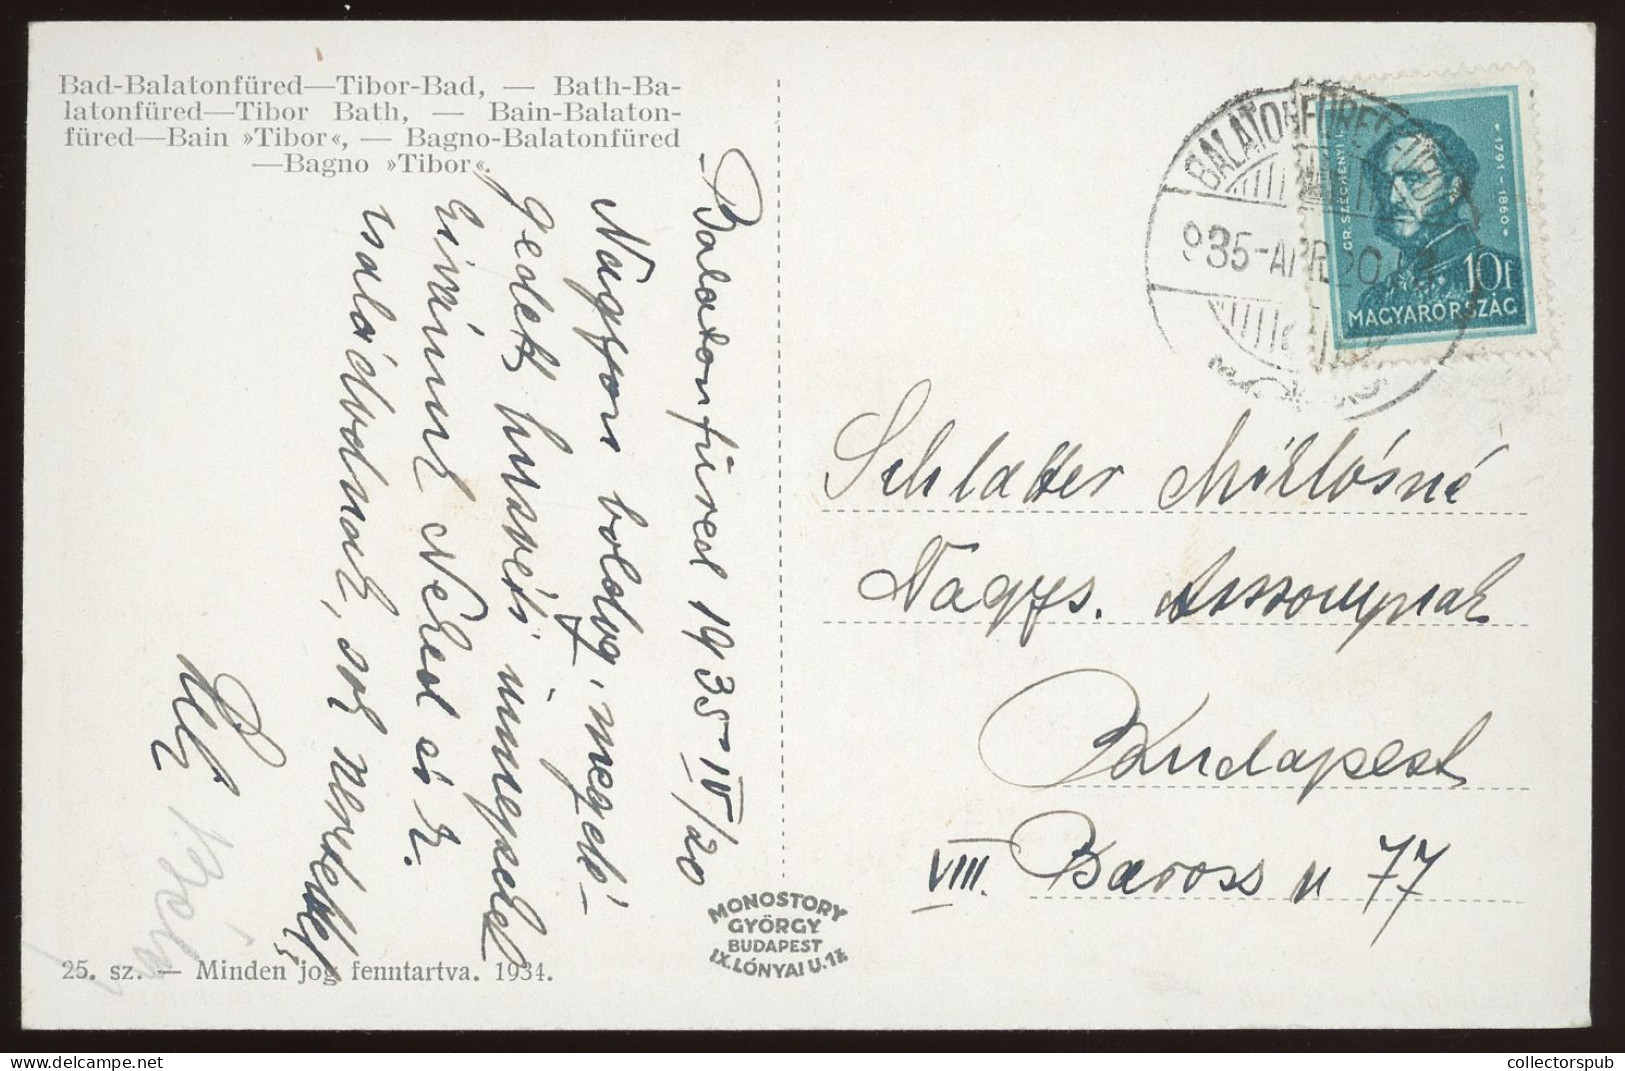 Bad-Balatonfüred—Tibor-Bad, — Bath-Ba-
latonfüred—Tibor Bath, — Bain-Balaton-
füred—Bain »Tibor«, — Bagno-Balatonfüred
—Bagno »Tibor«.
Balatonfüred 1935 IV/20
Nagyon boldog, megelé-
gedett husvéti ünnepeket
kivánunk Neked és k.
családodnak, sok szeretettel
Béla
25. sz. — Minden jog fenntartva. 1934.
MONOSTORY
GYÖRGY
BUDAPEST
IX. LÓNYAI U.
BALATONFÜRED
935-APR.20
GR. SZÉCHENYI I.
1791-1860
10f
MAGYARORSZÁG
Schlatter Miklósné
Nagys. Asszonynak
Budapest
VIII. Baross u 77
collectorspub